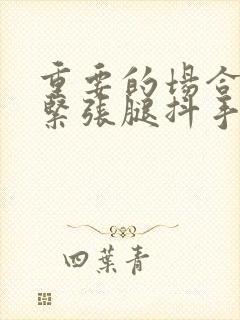 重要的場合
緊張腿抖手
四葉青